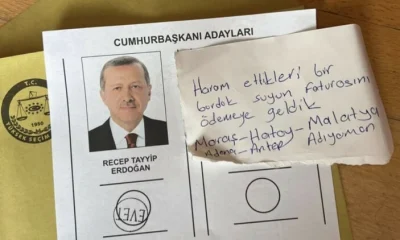 CUMHURBAŞKANI ADAYLARI
RECEP TAYYİP
ERDOĞAN
EVET
Haram ettikleri bir
bardak suyun faturasını
ödemeye geldik
Maraş-Hatay-Malatya
Adana-Antep Adıyaman
T.C.
YÜKSEK SEÇİM